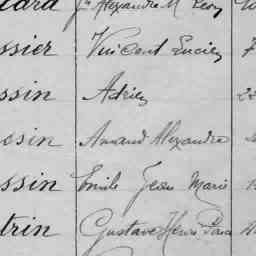 Alexandre M Léon
ssier Vincent Lucien
ssin Adrien
osin Armand Alexandre
ssin Emile Jean Marie
trin Gustave Henri